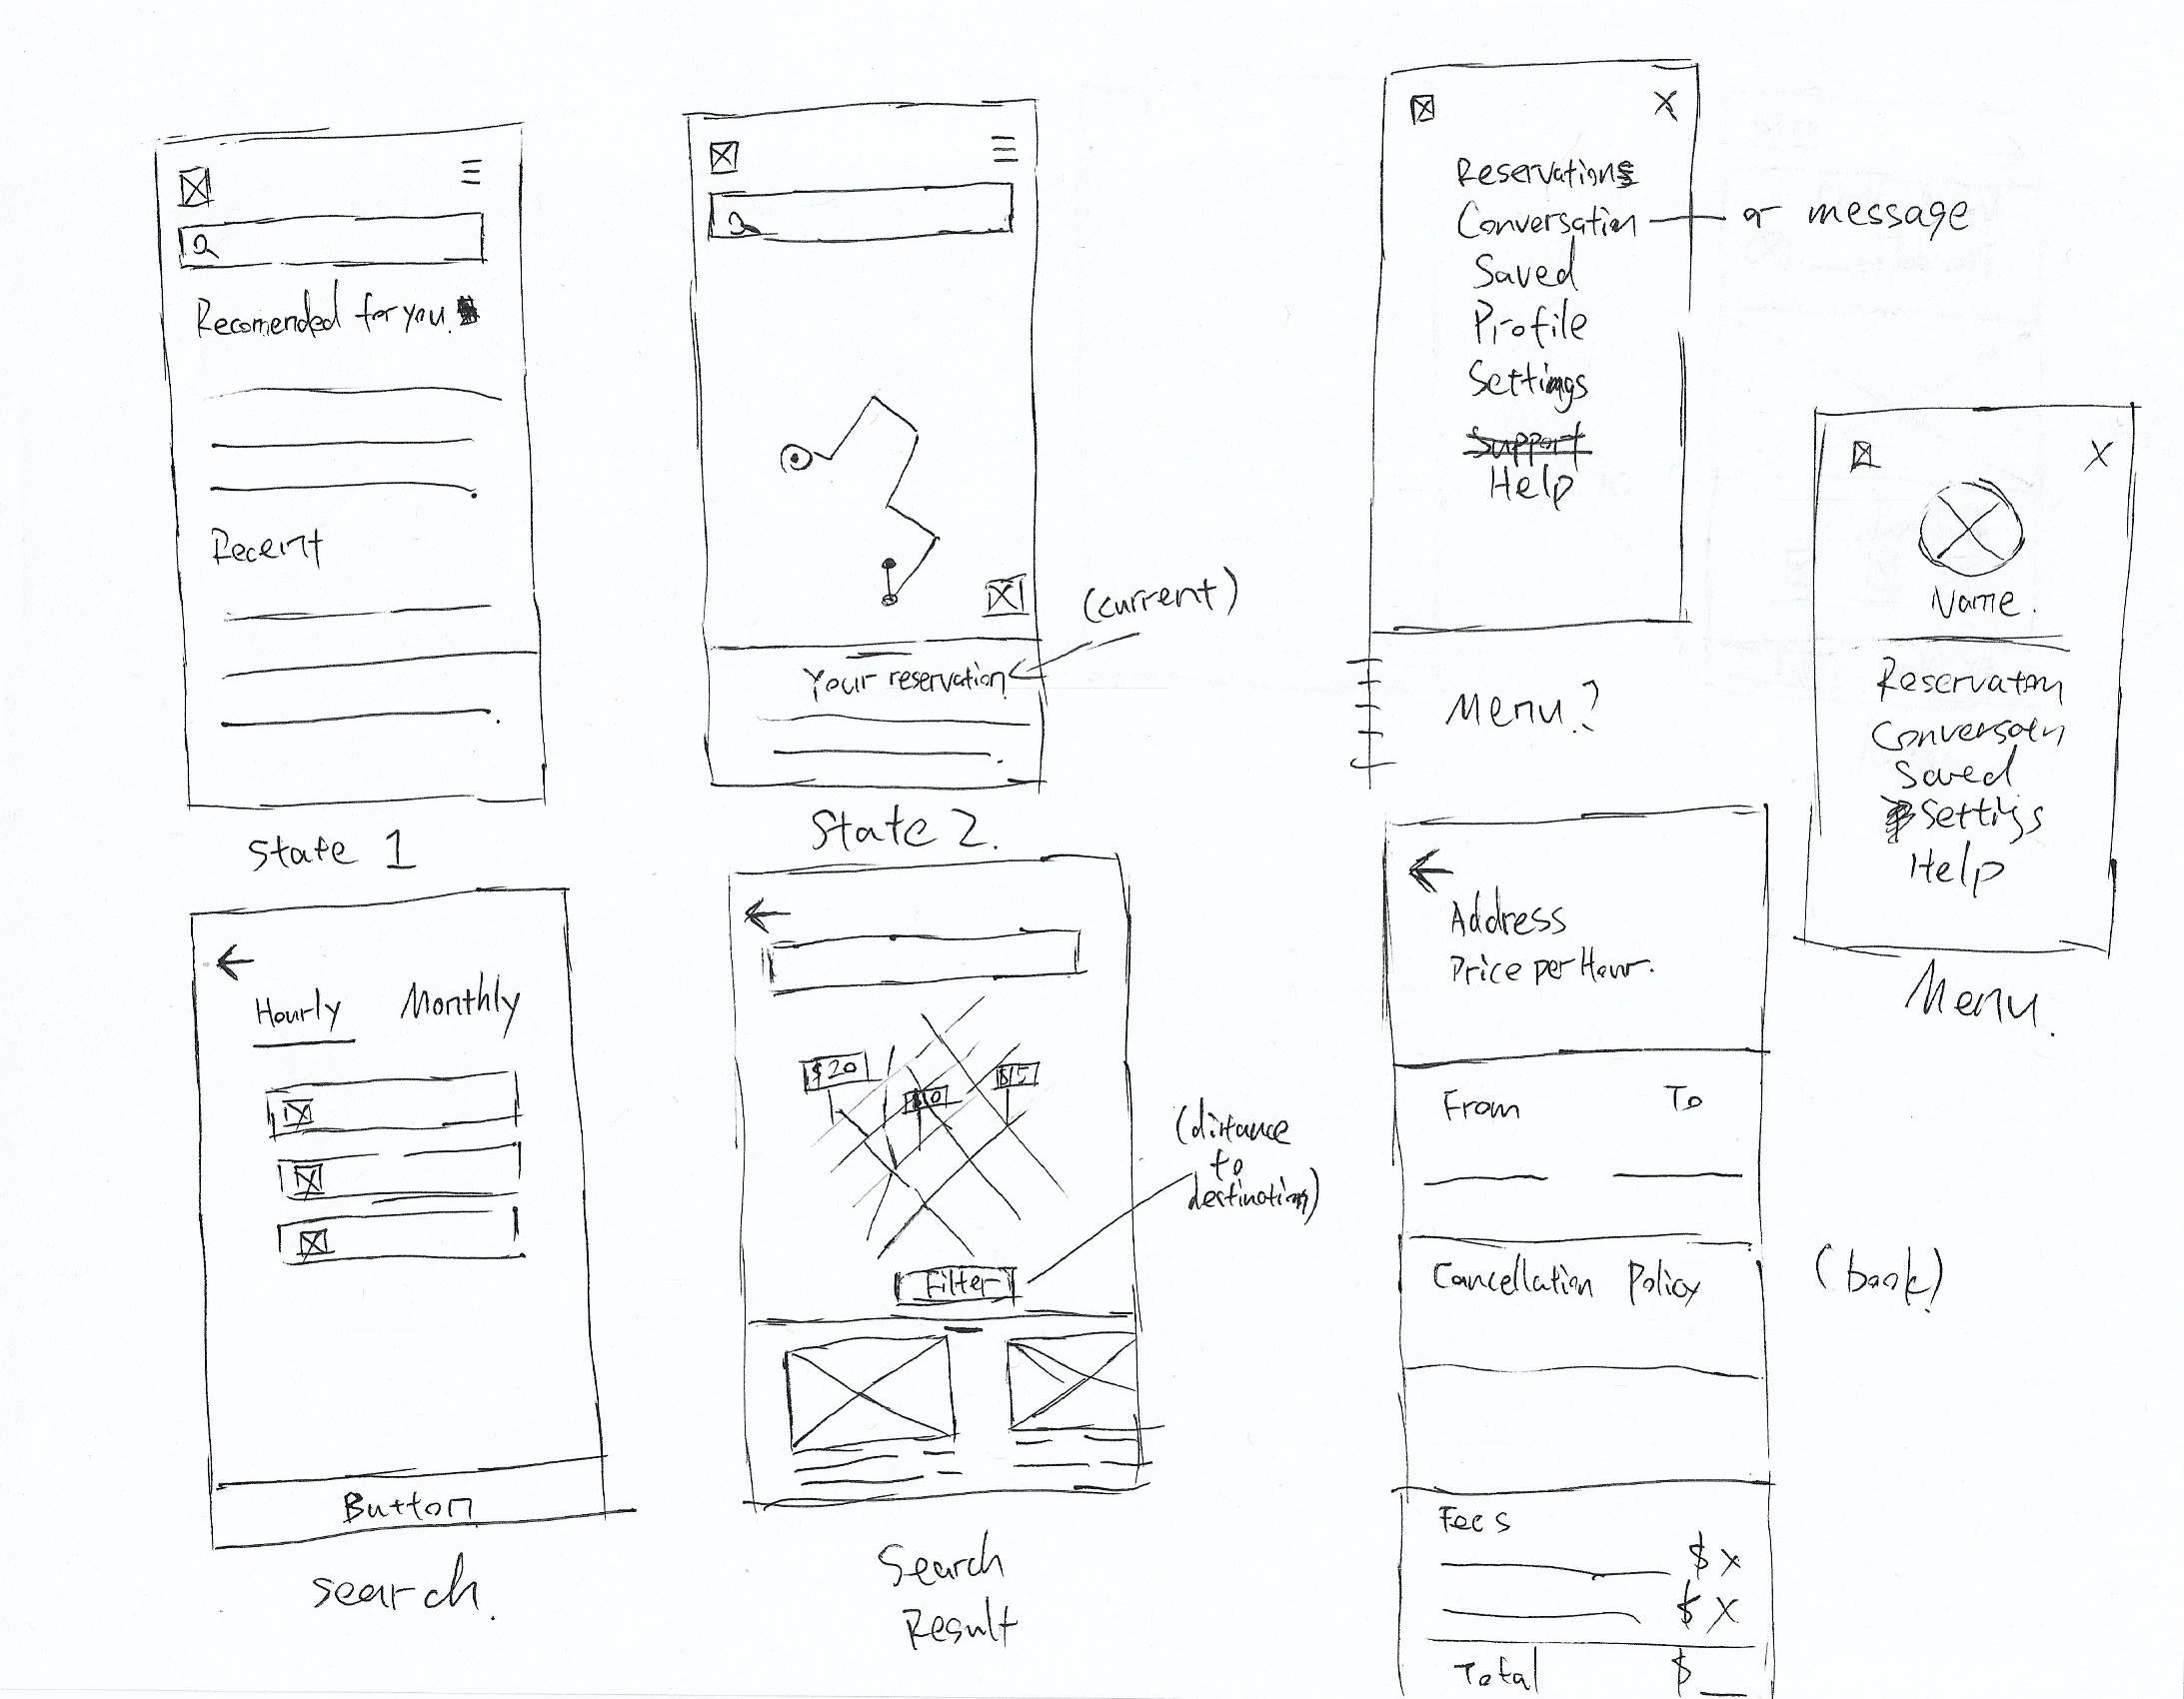 Recomended for you.
Recent
State 1
(current)
Your reservation
State 2.
Reservations
Conversation or message
Saved
Profile
Settings
Support
Help
Menu?
Name.
Reservation
Conversatn
Saved
Settigs
Help
Menu.
Hourly Monthly
Button
Search.
$20
$10
$15
(distance
to
destination)
Filter
Search
Result
Address
Price per Hour.
From To
Cancellation Policy
(book)
Fees
$ X
$ X
Total $ __